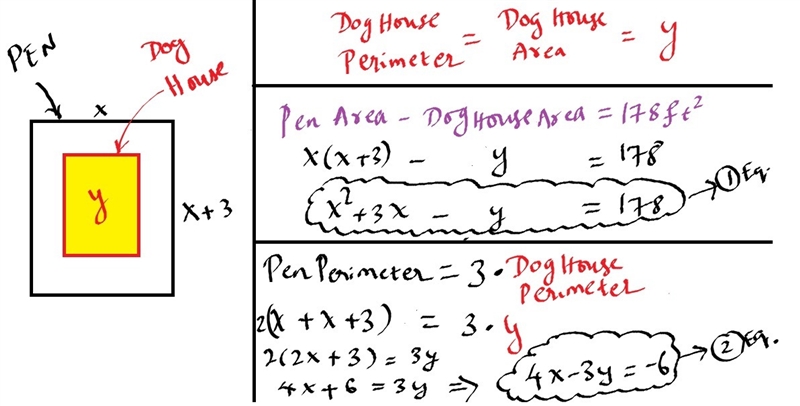 PEN
Dog
House
x
y
x+3
Dog House Perimeter = Dog House Area = y
Pen Area - Dog House Area = 178 ft²
x(x+3) - y = 178
x²+3x - y = 178 → ① Eq.
Pen Perimeter = 3 · Dog House Perimeter
2(x + x+3) = 3 · y
2(2x+3) = 3y
4x+6 = 3y ⇒ 4x-3y = -6 → ② Eq.